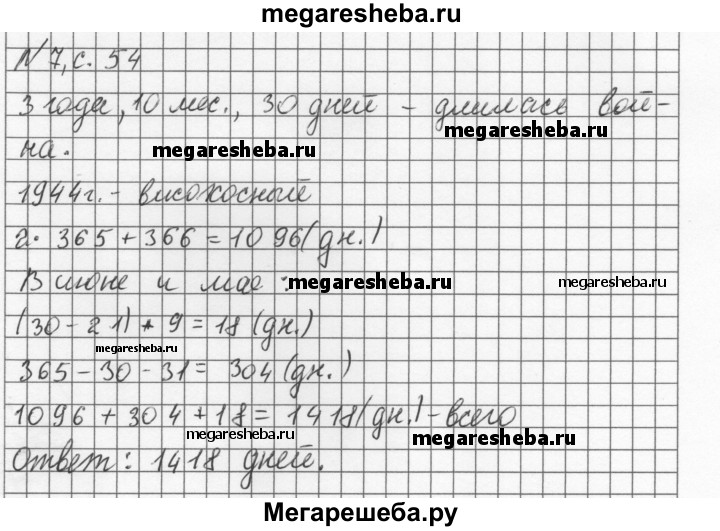 megaresheba.ru
N 7, с. 54
3 года, 10 мес., 30 дней – длилась вой-
megaresheba.ru
на.
megaresheba.ru
1944г. – високосный
2 · 365 + 366 = 1096 (дн.)
В июне и мае :
megaresheba.ru
megaresheba.ru
(30 – 21) + 9 = 18 (дн.)
megaresheba.ru
365 – 30 – 31 = 304 (дн.)
1096 + 304 + 18 = 1418 (дн.) – всего
megaresheba.ru
megaresheba.ru
Ответ: 1418 дней.
Мегарешеба.ру